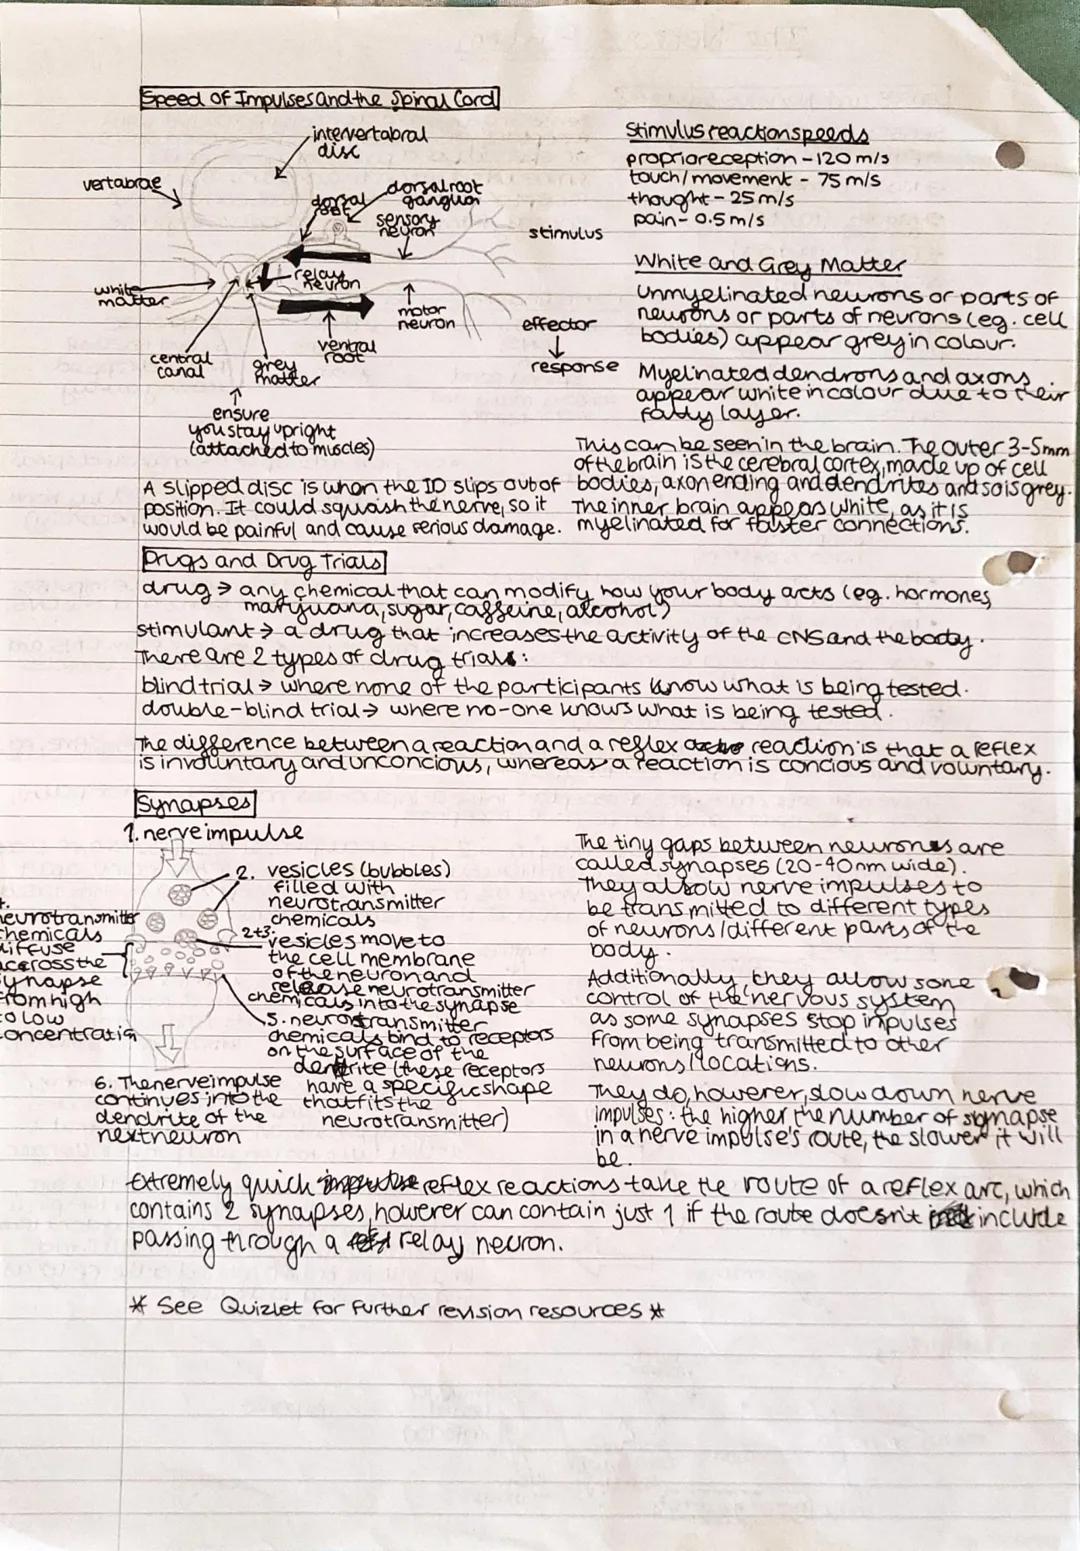 Speed of Impulses and the Spinal Cord
intervertabral
disc
vertabrae
dorsal
root
dorsal root
ganglion
sensory
neuron
stimulus
relay
neuron
white
matter
motor
neuron
effector
ventral
root
response
central
canal
grey
matter
ensure
you stay upright
(attached to muscles)
A slipped disc is when the ID slips out of
position. It could squash the nerve, so it
would be painful and cause serious damage.
Stimulus reaction speeds
proprioreception - 120 m/s
touch/movement - 75 m/s
thought - 25 m/s
pain - 0.5 m/s
White and Grey Matter
Unmyelinated neurons or parts of
neurons or parts of neurons (eg. cell
bodies) appear grey in colour.
Myelinated dendrons and axons
appear white in colour due to their
fatty layer.
This can be seen in the brain. The outer 3-5mm
of the brain is the cerebral cortex, made up of cell
bodies, axon ending and dendrites and so is grey.
The inner brain appears white, as it is
myelinated for faster connections.
Drugs and Drug Trials
drug → any chemical that can modify how your body acts (eg. hormones,
marijuana, sugar, caffeine, alcohol)
stimulant → a drug that increases the activity of the CNS and the body.
There are 2 types of drug trials:
blind trial → where none of the participants know what is being tested.
double-blind trial → where no-one knows what is being tested.
The difference between a reaction and a reflex reaction is that a reflex
is involuntary and unconcious, whereas a reaction is concious and voluntary.
Synapses
1. nerve impulse
2. vesicles (bubbles)
filled with
neurotransmitter
chemicals
2+3.
vesicles move to
the cell membrane
of the neuron and
release neurotransmitter
chemicals into the synapse
neurotransmitter
chemicals
diffuse
accross the
synapse
from high
to low
concentratio
5. neurotransmitter
chemicals bind to receptors
on the surface of the
dendrite (these receptors
have a specific shape
that fits the
neurotransmitter)
6. The nerve impulse
continues into the
dendrite of the
next neuron
The tiny gaps between neurons are
called synapses (20-40nm wide).
They allow nerve impulses to
be transmitted to different types
of neurons/different parts of the
body.
Additionally, they allow some
control of the nervous system
as some synapses stop impulses
from being transmitted to other
neurons/locations.
They do, however, slow down nerve
impulses: the higher the number of synapse
in a nerve impulse's route, the slower it will
be.
Extremely quick reflex reactions take the route of a reflex arc, which
contains 2 synapses, however can contain just 1 if the route doesn't include
passing through a relay neuron.
* See Quizlet for further revision resources *